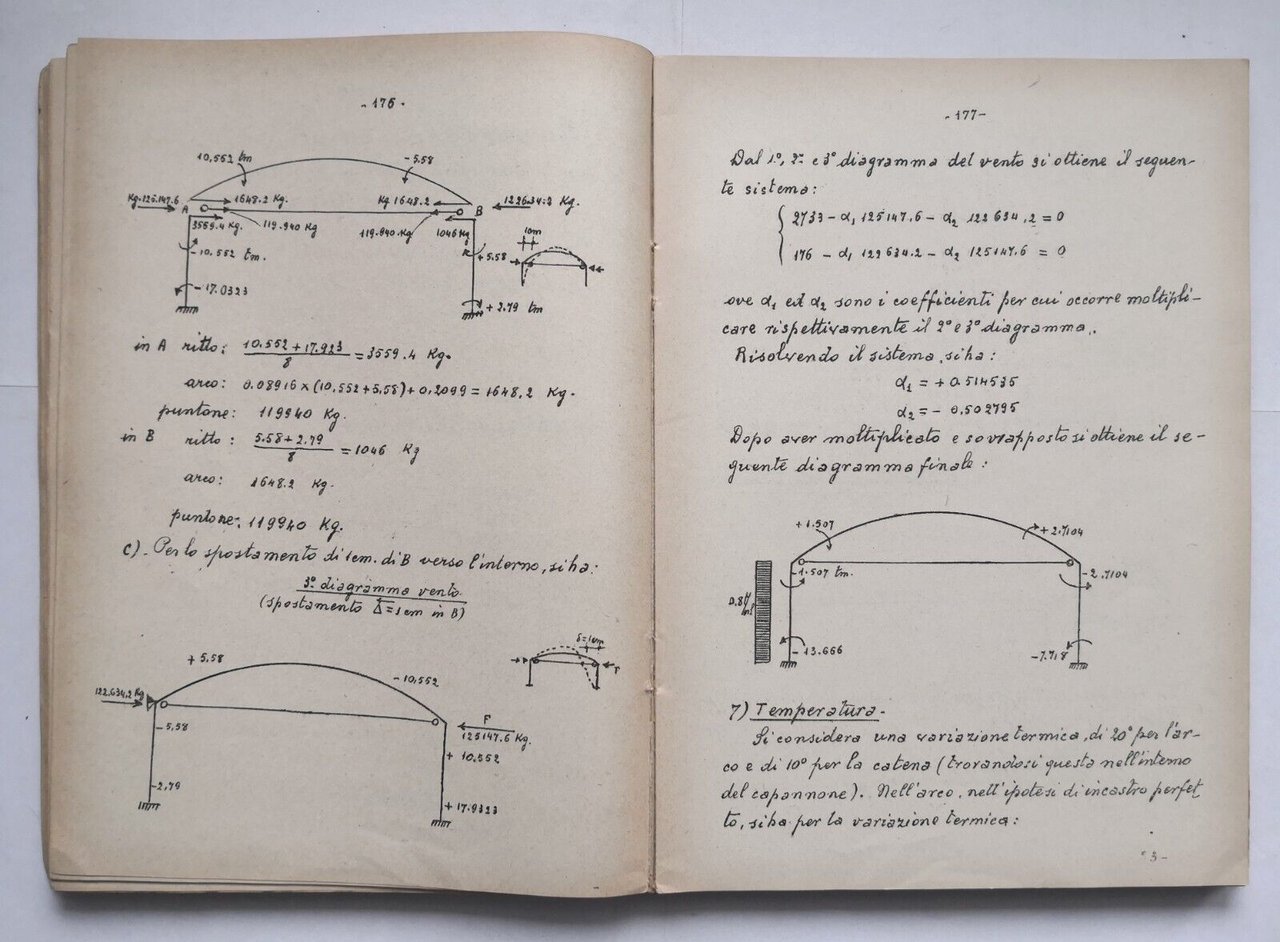 - 176 -
10,552 tm
- 5.58
Kg.125.147.6
A
1648.2 Kg.
Kg 1648.2
B
1226.34.2 Kg.
3559.4 Kg.
119.940 Kg
119.940 Kg
1046 Kg
10m
- 10.552 tm.
+ 5.58
- 17.0323
+ 2.79 tm
in A ritto: 10.552 + 17.923 / 8 = 3559.4 Kg.
arco: 0.08916 x (10,552 + 5,58) + 0,2099 = 1648,2 Kg.
puntone: 119940 Kg.
in B ritto: 5.58 + 2.79 / 8 = 1046 Kg
arco: 1648.2 Kg.
puntone: 119940 Kg.
c) - Per lo spostamento di 1cm. di B verso l'interno, si ha:
3° diagramma vento
(spostamento Δ = 1 cm in B)
δ = 1cm
+ 5.58
- 10,552
122.634,2 Kg
F
125147.6 Kg.
- 5,58
+ 10,552
- 2,79
+ 17.9323
- 177 -
Dal 1°, 2° e 3° diagramma del vento si ottiene il seguen-
te sistema:
2733 - α1 125147.6 - α2 122634.2 = 0
176 - α1 122634.2 - α2 125147.6 = 0
ove α1 ed α2 sono i coefficienti per cui occorre moltipli-
care rispettivamente il 2° e 3° diagramma.
Risolvendo il sistema, si ha:
α1 = + 0.514535
α2 = - 0,502795
Dopo aver moltiplicato e sovrapposto si ottiene il se-
guente diagramma finale:
+ 1.507
+ 2.7104
- 1.507 tm.
- 2.7104
- 13.666
- 7.718
7) Temperatura -
Si considera una variazione termica, di 20° per l'ar-
co e di 10° per la catena (trovandosi questa nell'interno
del capannone). Nell'arco, nell'ipotesi di incastro perfet
to, si ha per la variazione termica: